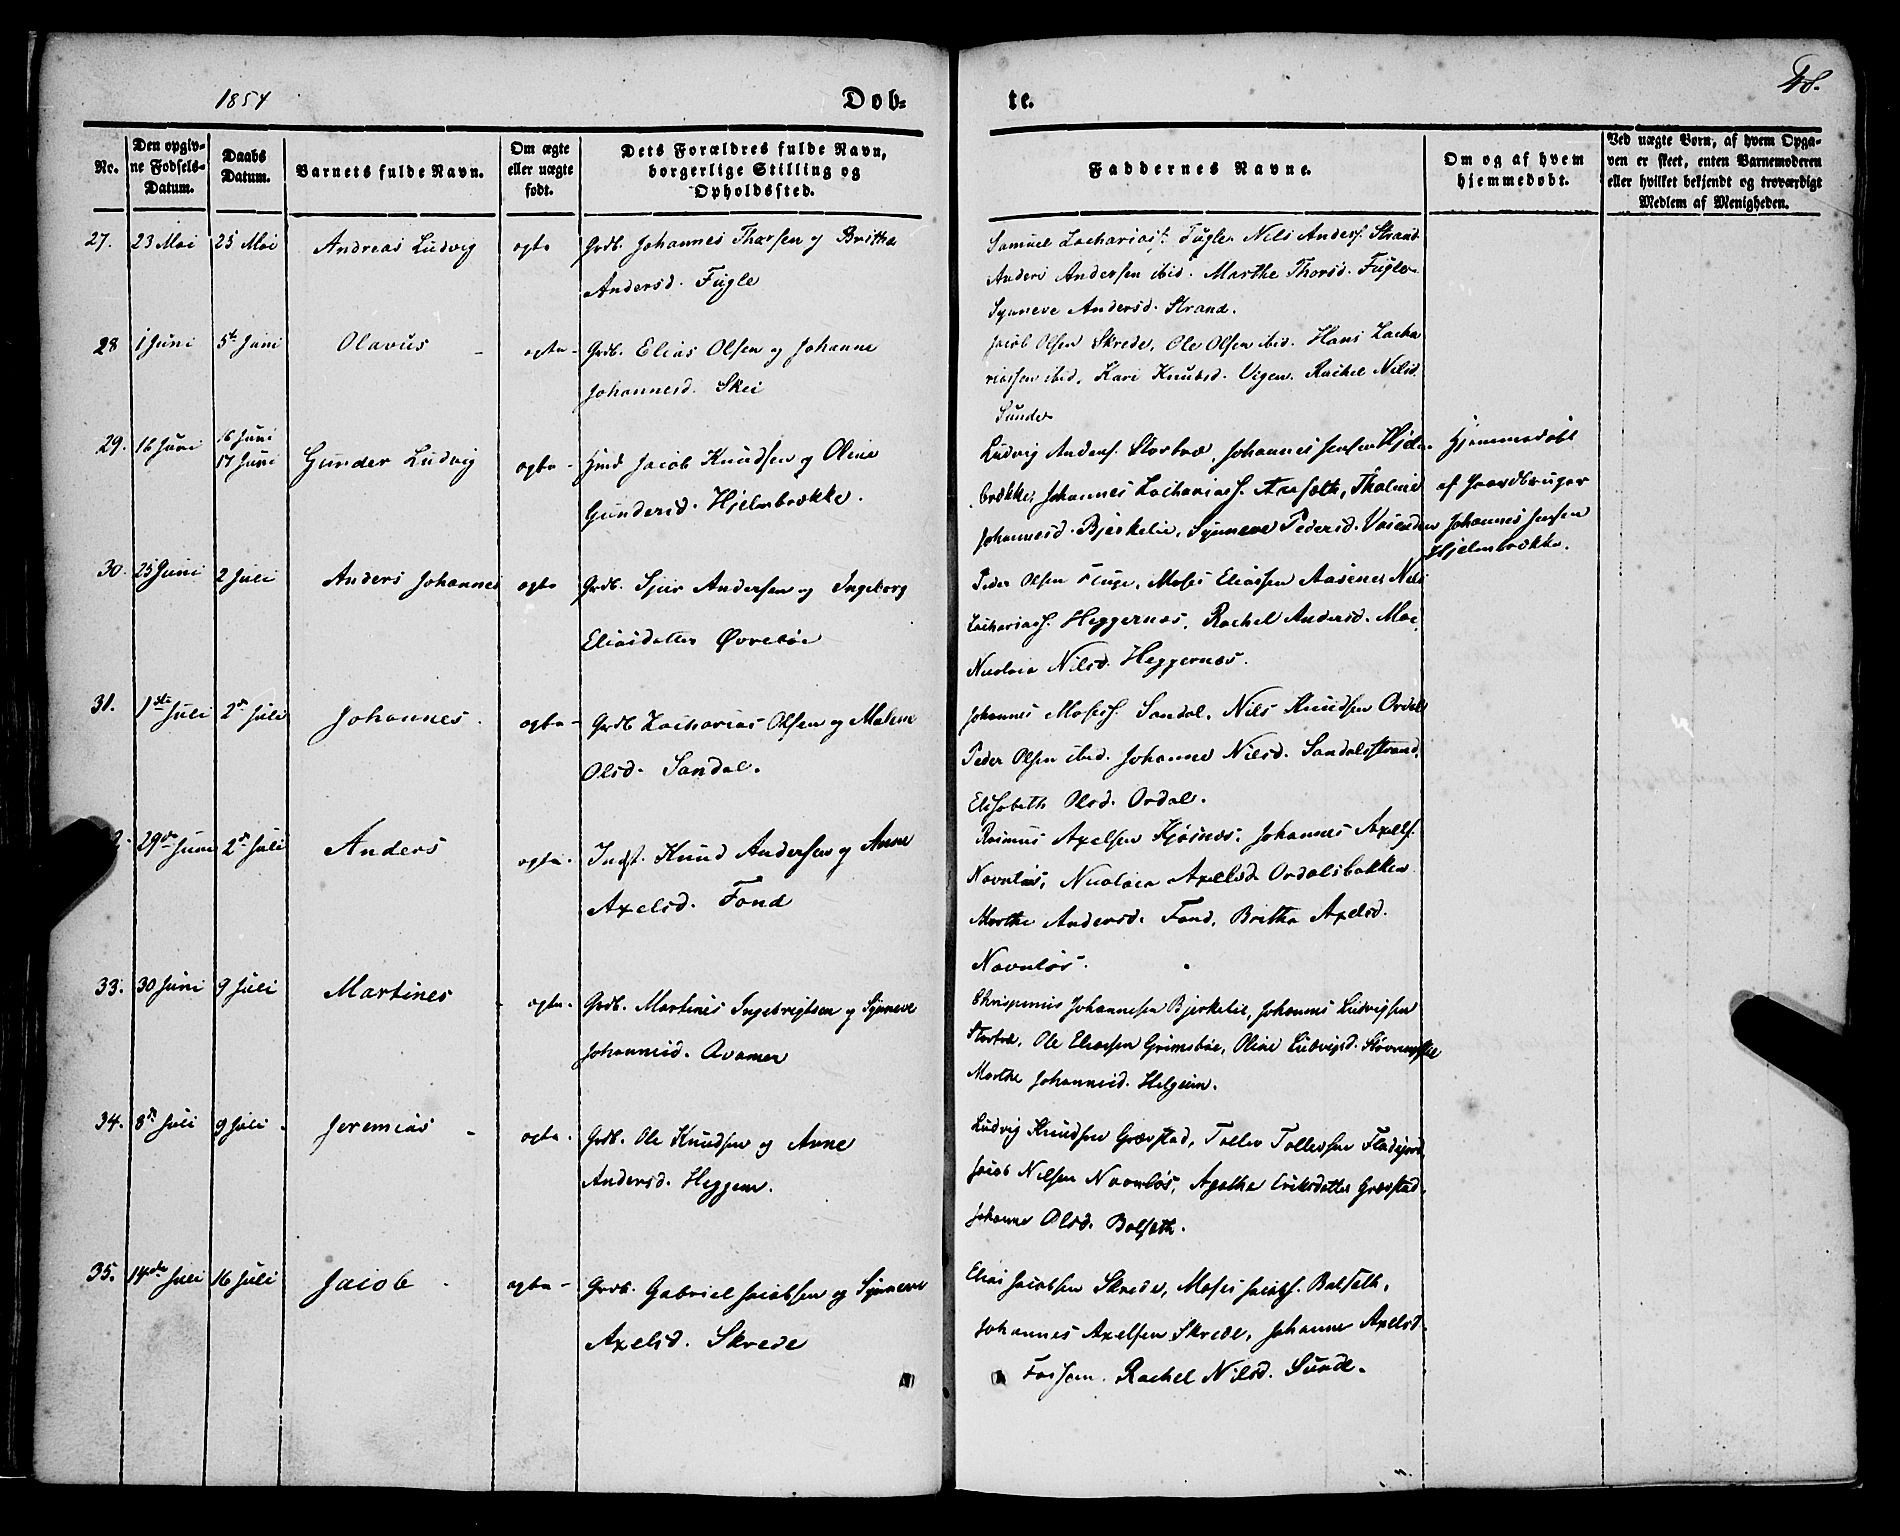 1854
Døb-
te.
48.
No.
Den opgiv-
ne Fødsels-
Datum.
Daabs
Datum.
Barnets fulde Navn.
Om ægte
eller uægte
født.
Dets Forældres fulde Navn,
borgerlige Stilling og
Opholdssted.
Faddernes Navne.
Om og af hvem
hjemmedøbt.
Ved uægte Børn, af hvem Opga-
ven er skeet, enten Barnemoderen
eller hvilket bekjendt og troværdigt
Medlem af Menigheden.
27. 23 Mai 25 Mai Andreas Ludvig ægte Grdb. Johannes Thorsen og Britha
Andersd. Fugle
Samuel Zachariass. Fugle, Nils Anders. Strand
Anders Andersen ibid. Marthe Thorsd. Fugle
Synneve Andersd. Strand.
28 1 Juni 5te Juni Olavus - ægte - Grdb. Elias Olsen og Johanne
Johannesd. Skei
Jacob Olsen Skrede, Ole Olsen ibid. Hans Zacha
riassen ibid, Kari Knudsd. Vigen. Rachel Nilsd.
Sunde
29. 16 Juni 16 Juni
17 Juni Gunder Ludvig ægte - Hmd Jacob Knudsen og Oline
Gundersd. Hjelmbrække.
Ludvig Anders. Storbræ, Johannes Jensen Hjelm-
brække, Johannes Zachariass. Aasæth, Thalmine
Johannesd. Bjerkelie, Synneve Pedersd. Vasenden
Hjemmedøbt
af Gaardbruger
Johannes Jensen
Hjelmbrække.
30. 25 Juni 2 Juli Anders Johannes ægte Grdb. Sjur Andersen og Ingeborg
Eliasdatter Øvrebøe
Peder Olsen Fluge, Moses Eliassen Aasenes Nils
Zachariass. Heggernæs, Rachel Andersd. Moe,
Nicolaia Nilsd. Heggernæs.
31. 1ste Juli 2n Juli Johannes - ægte - Grdb Zacharias Olsen og Malene
Olsd. Sandal.
Johannes Moses. Sandal, Nils Knudsen Ordal
Peder Olsen ibid. Johanne Nilsd. Sandalsstrand,
Elisabeth Olsd. Ordal.
29de Juni 2n Juli Anders ægte - Indst. Knud Andersen og Anne
Axelsd. Fond
Rasmus Axelsen Kjøsnæs, Johannes Axels.
Navnløs, Nicolaia Axelsd. Ordalsbakken
Marthe Andersd. Fond, Britha Axelsd.
Navnløs.
33. 30 Juni 9 Juli Martines - ægte - Grdb. Martines Ingebrigtsen og Synneve
Johannesd. Avamer
Johannesen Bjerkelie, Johannes Ludvigsen
Storbræ, Ole Eliassen Grimsbøe, Oline Ludvigsd.
Marthe Johannesd. Helgeim.
34. 8de Juli 9 Juli - Jeremias - ægte - Grdb. Ole Knudsen og Anne
Andersd. Heggem.
Ludvig Knudsen Grævstad, Tollev Tollevsen Fladejord,
Jacob Nilsen Navnløs, Agatha Eriksdatter Grævstad
Johanne Olsd. Bolsæth.
35. 14de Juli 16 Juli Jacob - ægte - Grdb. Gabriel Jacobsen og Synneve
Axelsd. Skrede
Elias Jacobsen Skrede, Moses Jacobs. Bolsæth,
Johannes Axelsen Skrede, Johanne Axelsd.
Fossem. Rachel Nilsd. Sunde.